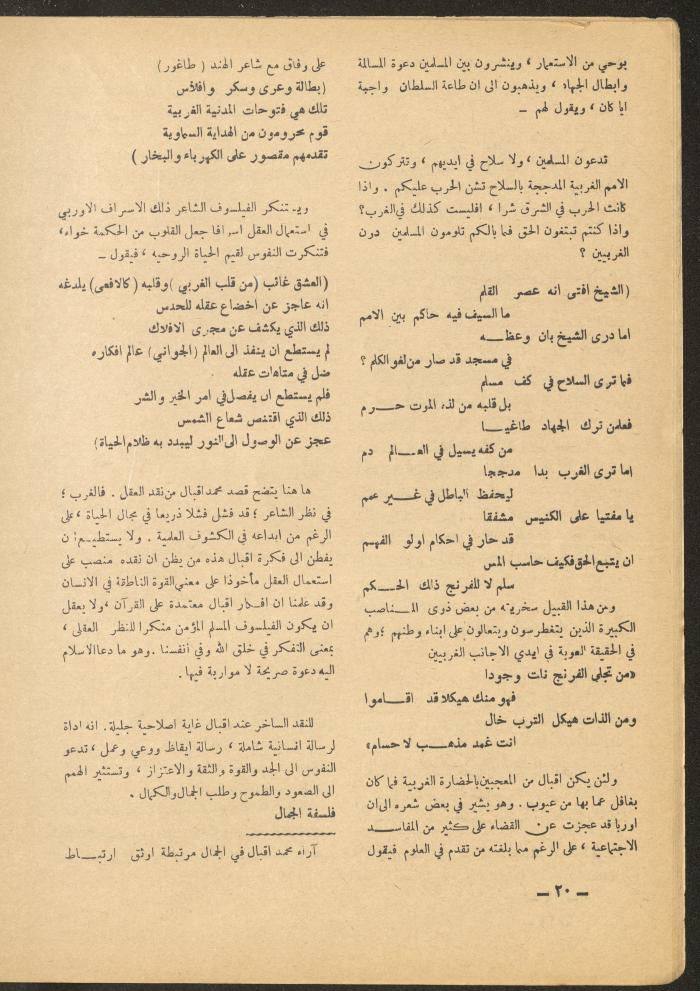 بوحي من الاستعمار ، وينشرون بين المسلمين دعوة المسالمة
وابطال الجهاد ، ويذهبون الى ان طاعة السلطان واجبة
ايا كان ، ويقول لهم ــ
تدعون المسلمين ، ولا سلاح في ايديهم ، وتتركون
الامم الغربية المدججة بالسلاح تشن الحرب عليكم . واذا
كانت الحرب في الشرق شرا ، افليست كذلك في الغرب؟
واذا كنتم تبتغون الحق فما بالكم تلومون المسلمين دون
الغربيين ؟
(الشيخ افتى انه عصر القلم
ما السيف فيه حاكم بين الامم
اما درى الشيخ بان وعظـــه
في مسجد قد صار من لغو الكلم ؟
فما ترى السلاح في كف مسلم
بل قلبه من لذة الموت حـــرم
فعلمن ترك الجهاد طاغيـــا
من كفه يسيل في العـــالم دم
اما ترى الغرب بدا مدججا
ليحفظ الباطل في غـــير عمم
يا مفتيا على الكنيس مشفقا
قد حار في احكام اولو الفهم
ان يتبع الحق فكيف حاسب المس
سلم لا للفرنج ذاك الحـــكم
ومن هذا القبيل سخريته من بعض ذوى المـــناصب
الكبيرة الذين يتغطرسون ويتعالون على ابناء وطنهم ؛ وهم
في الحقيقة العوبة في ايدي الاجانب الغربيين
«من تجلي الفرنج نات وجودا
فهو منك هيكلا قد اقـــاموا
ومن الذات هيكل الترب خال
انت غمد مذهـــب لا حسام»
ولئن يكن اقبال من المعجبين بالحضارة الغربية فما كان
بغافل عما بها من عيوب . وهو يشير في بعض شعره الى ان
اوربا قد عجزت عن القضاء على كثير من المفاســـد
الاجتماعية ، على الرغم مما بلغته من تقدم في العلوم فيقول
على وفاق مع شاعر الهند ( طاغور )
(بطالة وعرى وسكر وافلاس
تلك هي فتوحات المدنية الغربية
قوم محرومون من الهداية السماوية
تقدمهم مقصور على الكهرباء والبخار )
ويستنكر الفيلسوف الشاعر ذلك الاسراف الاوربي
في استعمال العقل اسرافا جعل القلوب من الحكمة خواء،
فتنكرت النفوس لقيم الحياة الروحيه ، فيقول ــ
(العشق غائب (من قلب الغربي )وقلبه (كالافعى) يلدغه
انه عاجز عن اخضاع عقله للحدس
ذلك الذي يكشف عن مجرى الافلاك
لم يستطع ان ينفذ الى العالم (الجواني) عالم افكاره
ضل في متاهات عقله
فلم يستطع ان يفصل في امر الخير والشر
ذلك الذي اقتنص شعاع الشمس
عجز عن الوصول الى النور ليبدد به ظلام الحياة)
ها هنا يتضح قصد محمد اقبال من نقد العقل . فالغرب ؛
في نظر الشاعر ؛ قد فشل فشلا ذريعا في مجال الحياة ، على
الرغم من ابداعه في الكشوف العلمية . ولا يستطيع ان
يفطن الى فكرة اقبال هذه من يظن ان نقده منصب على
استعمال العقل مأخوذا على معنى القوة الناطقة في الانسان
وقد علمنا ان افكار اقبال معتمدة على القرآن ، ولا يعقل
ان يكون الفيلسوف المسلم المؤمن منكرا للنظر العقلى ،
بمعنى التفكر في خلق الله وفي أنفسنا . وهو ما دعا الاسلام
اليه دعوة صريحة لا مواربة فيها .
للنقد الساخر عند اقبال غاية اصلاحية جليلة . انه اداة
لرسالة انسانية شاملة ، رسالة ايقاظ ووعي وعمل ، تدعو
النفوس الى الجد والقوة والثقة والاعتزاز ، وتستثير الهمم
الى الصعود والطموح وطلب الجمال والكمال .
فلسفة الجمال
آراء محمد اقبال في الجمال مرتبطة اوثق ارتبـــاط
ــ ٢٠ ــ